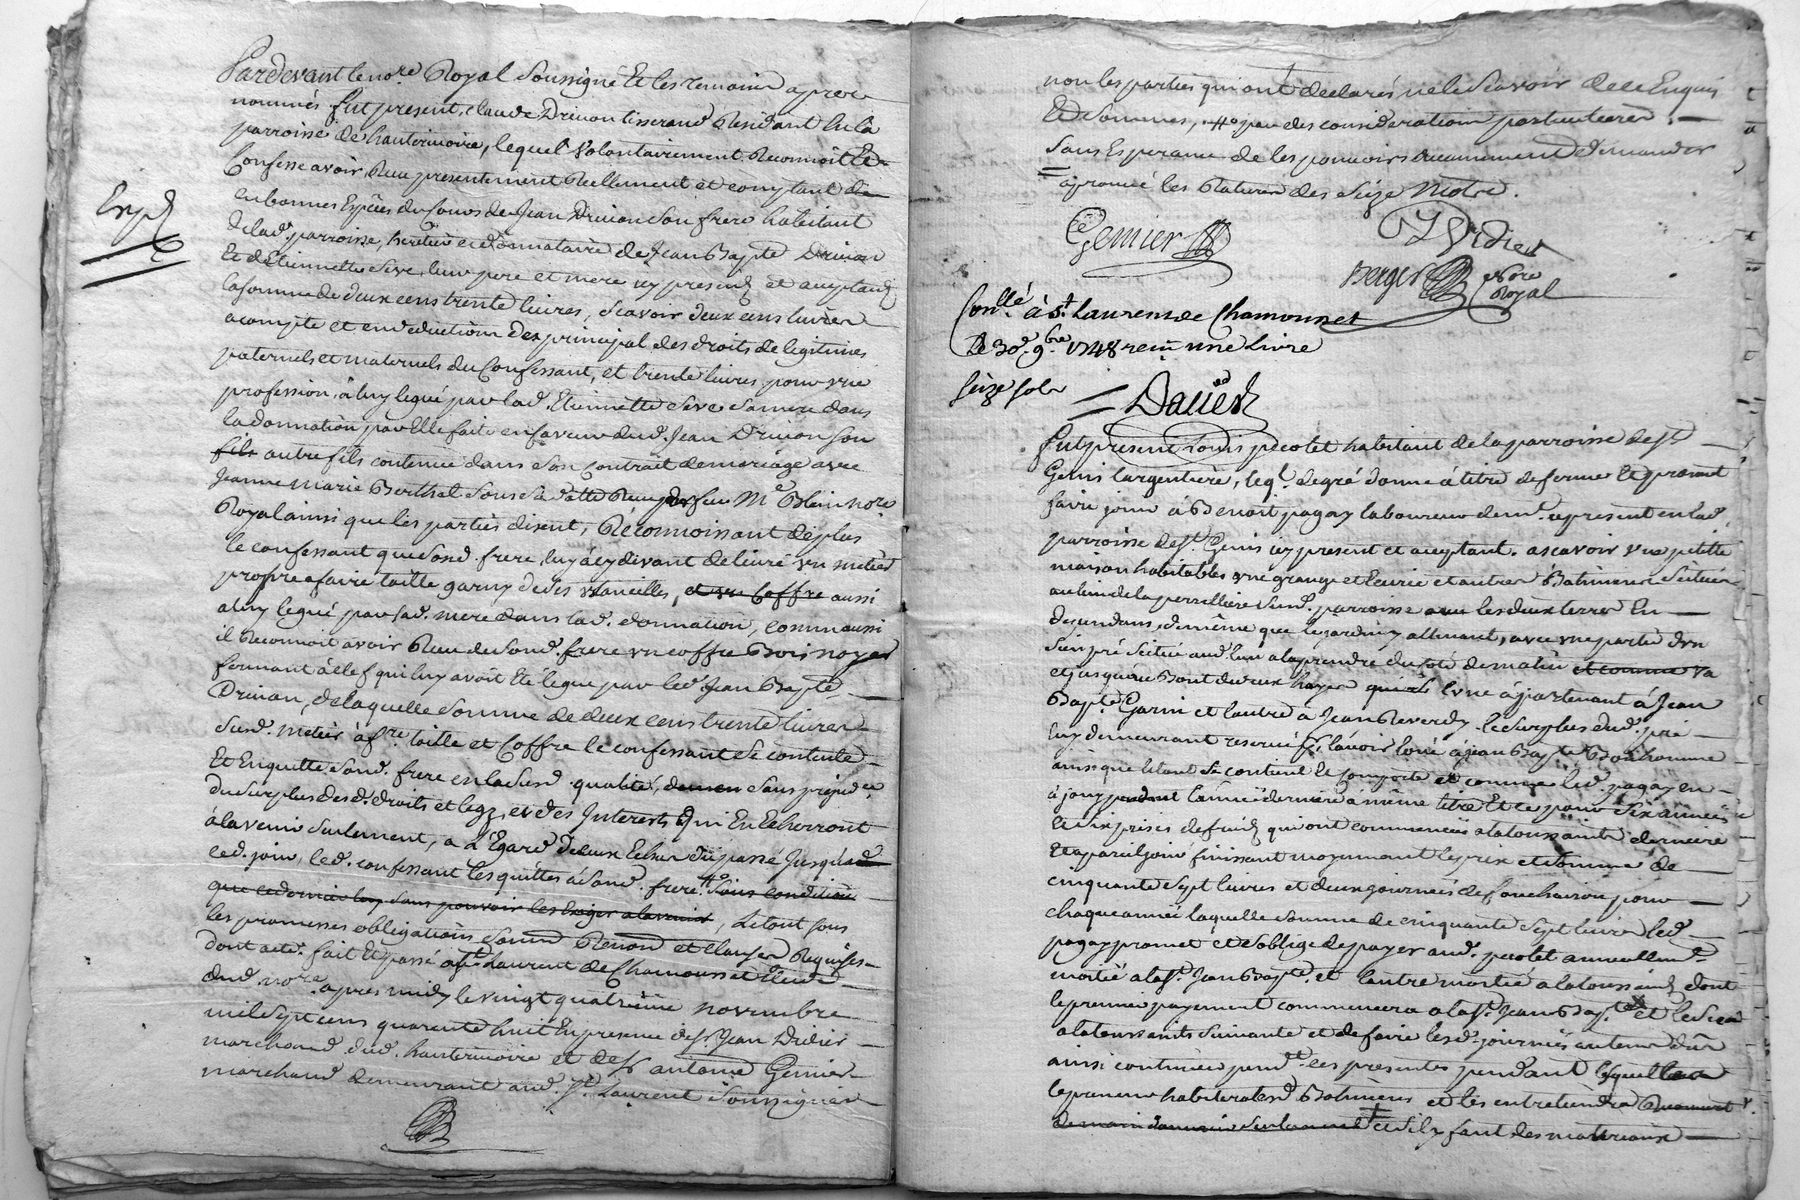 Pardevant le no.re Royal Soussigné Et les temoins apres
nommés fut present, claude Drivon tisserand Residant En la
parroisse de hauterivoire, lequel volontairement Reconnoit Et
Confesse avoir Reçu presentement Reellement et comptant de
Exp.d
en bonnes Espèces du Cours de Jean Drivon son frere habitant
de lad. parroisse, heritier et donnataire de Jean Bapte Drivon
Et d'Etiennette Seve, leur pere et mere icy present et acceptant
la somme de deux cens trente livres, scavoir deux cens livres
acompte et en deduction des principal des droits de legitimes
paternels et maternels du Confessant, et trente livres pour une
profession, à luy legué par lad. Etiennette Seve sa mere dans
la donnation par Elle faite en faveur dud. Jean Drivon son
fils autre fils contenue dans son contrat de mariage avec
Jeanne Marie Berthal sous sa datte Reçu par feu Me Blein nore
Royal ainsi que les parties disent, Reconnoissant de plus
le confessant que sond. frere luy a cy devant delivré un metier
propre a faire taille garny de des utancilles, et un Coffre aussi
a luy legué par sad. mere dans lad. donnation, comm'aussi
il Reconnoit avoir Reçu de sond. frere un coffre Bois noyer
fermant à clef qui luy avoit Eté legué par led. Jean Bapte
Drivon, de laquelle somme de deux cens trente livres
susd. metier à fre. toille et Coffre le confessant se contente
Et Enquitte sond. frere en la susd. qualité, sans prejudice
du surplus desd. droits et legz, et des Interets qui En Echerront
à la venir seulement, a L'Egard de ceux Echus du passé jusqu'a
ced. jour, led. confessant les quitte à sond. frere, sans condition
que ce dernier luy sans pouvoir les Exiger a lavenir, Le tout sous
les promesses obligations soumn Renon et clauses Requises
dont acte. fait Et passé a St Laurent de Chamousset Etude
dud. nore. apres midy le vingt quatrieme novembre
mil sept cens quarente huit En presence de Sr. Jean Didier
marchand dud. hauterivoire et de Sr antoine Genier
marchand demeurant aud. St. Laurent soussignes
non les parties qui ont declarés ne le scavoir de ce Enquis
Et Sommés, # par des consideration particulieres
sans Esperance de les pouvoirs aucunement demander
aprouvé les Ratures des seize motre.
Genier
J Didier
Berger Nore
Royal
Conllé à St Laurens de Chamousset
Le 30e 9bre 1748 reçu une Livre
seize sols
Daües
fut present Louis pecolet habitant de la parroisse de St
Genis largentière, leql. de gré donne à titre de ferme Et promet
faire jouir à Benoit pagay laboureur demt. apresent en lad.
parroisse de St. Genis icy present et acceptant. ascavoir une petitte
maison habitables une grange et Ecurie et autres Batimens Scituées
au lieu de la perrelliere susd. parroisse avec les deux terres En
dependans, de même que le jardin y attenant, avec une partie d'un
sien pré scitué aud. lieu a la prendre du coté de matin et comme va
et jusqu'au Bout de deux hayes qui est l'une apartenant à Jean
Bapte Garin et l'autre à Jean Reverdy. le surplus dud. pré
luy demeurant reservé pr. l'avoir loué à Jean Bapte Bonhomme
ainsi que letout se contient Et comporte et comme led. pagay en
à jouy pendant l'année derniere à même titre Et ce pour six années
Et six prises de fruits qui ont commencées a la toussaints derniere
Et a pareil jour finissant moyennant le prix et somme de
cinquante sept livres et deux journées de faucheurs pour
chaque année laquelle somme de cinquante sept livres led.
pagay promet et s'oblige de payer aud. pecolet annuellemt.
moitié a la St. Jean Bapte. et l'autre moitié a la toussaint dont
le premier payement commencera a la St. Jean Bapte et le Second
a la toussaints suivante et de faire lesd. journées au temps dû
ainsi continuer pendt. ces presentes pendant lesquelles
le preneur habiterales d. Batimens et les entretiendra
de main d'ouvrier seulement et s'il y faut des materiaux